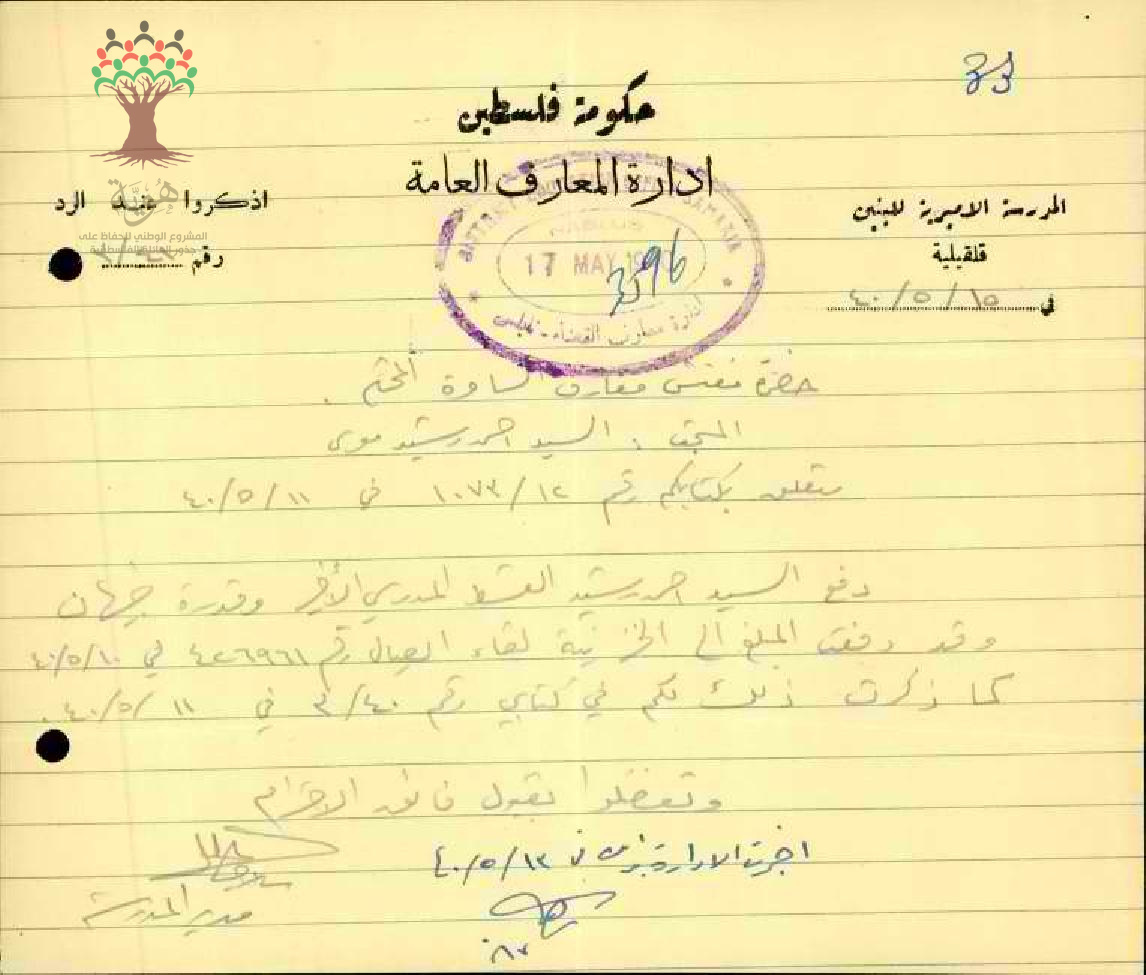 33
حكومة فلسطين
ادارة المعارف العامة
المدرسة الاميرية للبنين
قلقيلية
في ١٥/٥/٤٠
اذكروا عند الرد
رقم
هُويَّة
المشروع الوطني للحفاظ على
جذور العائلة الفلسطينية
SAMARIA
NABLUS
17 MAY 1940
ادارة معارف القضاء - نابلس
3396
حضرة مفتش معارف السامرة المحترم .
السيد احمد رشيد موسى
متعلق بكتابكم رقم ١٠٧٣/١٢ في ١١/٥/٤٠
دفع السيد احمد رشيد القسط المدرسي الأخير وقدره جنيهان
وقد دفعت المبلغ الى الخزينة لقاء ايصال رقم ٤٢٦٩٦١ في ١٠/٥/٤٠
كما ذكرت ذلك لكم في كتابي رقم ٣/٤٠ في ١١/٥/٤٠.
وتفضلوا بقبول فائق الاحترام
مدير المدرسة
اخبرت الادارة في ١٣/٥/٤٠